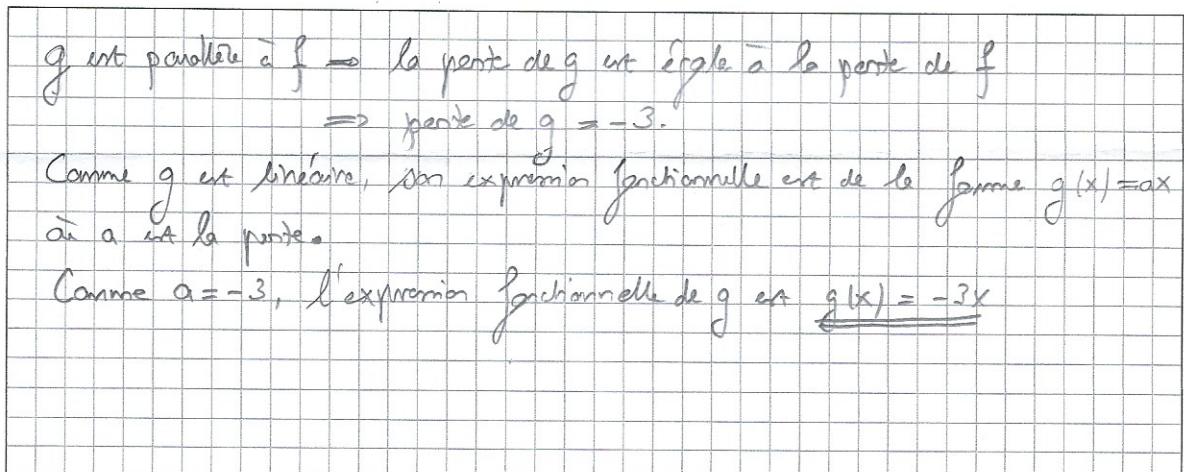 g est parallèle à f ⇒ la pente de g est égale à la pente de f
⇒ pente de g = -3.
Comme g est linéaire, son expression fonctionnelle est de la forme g(x)=ax
où a est la pente.
Comme a = -3, l'expression fonctionnelle de g est g(x) = -3x